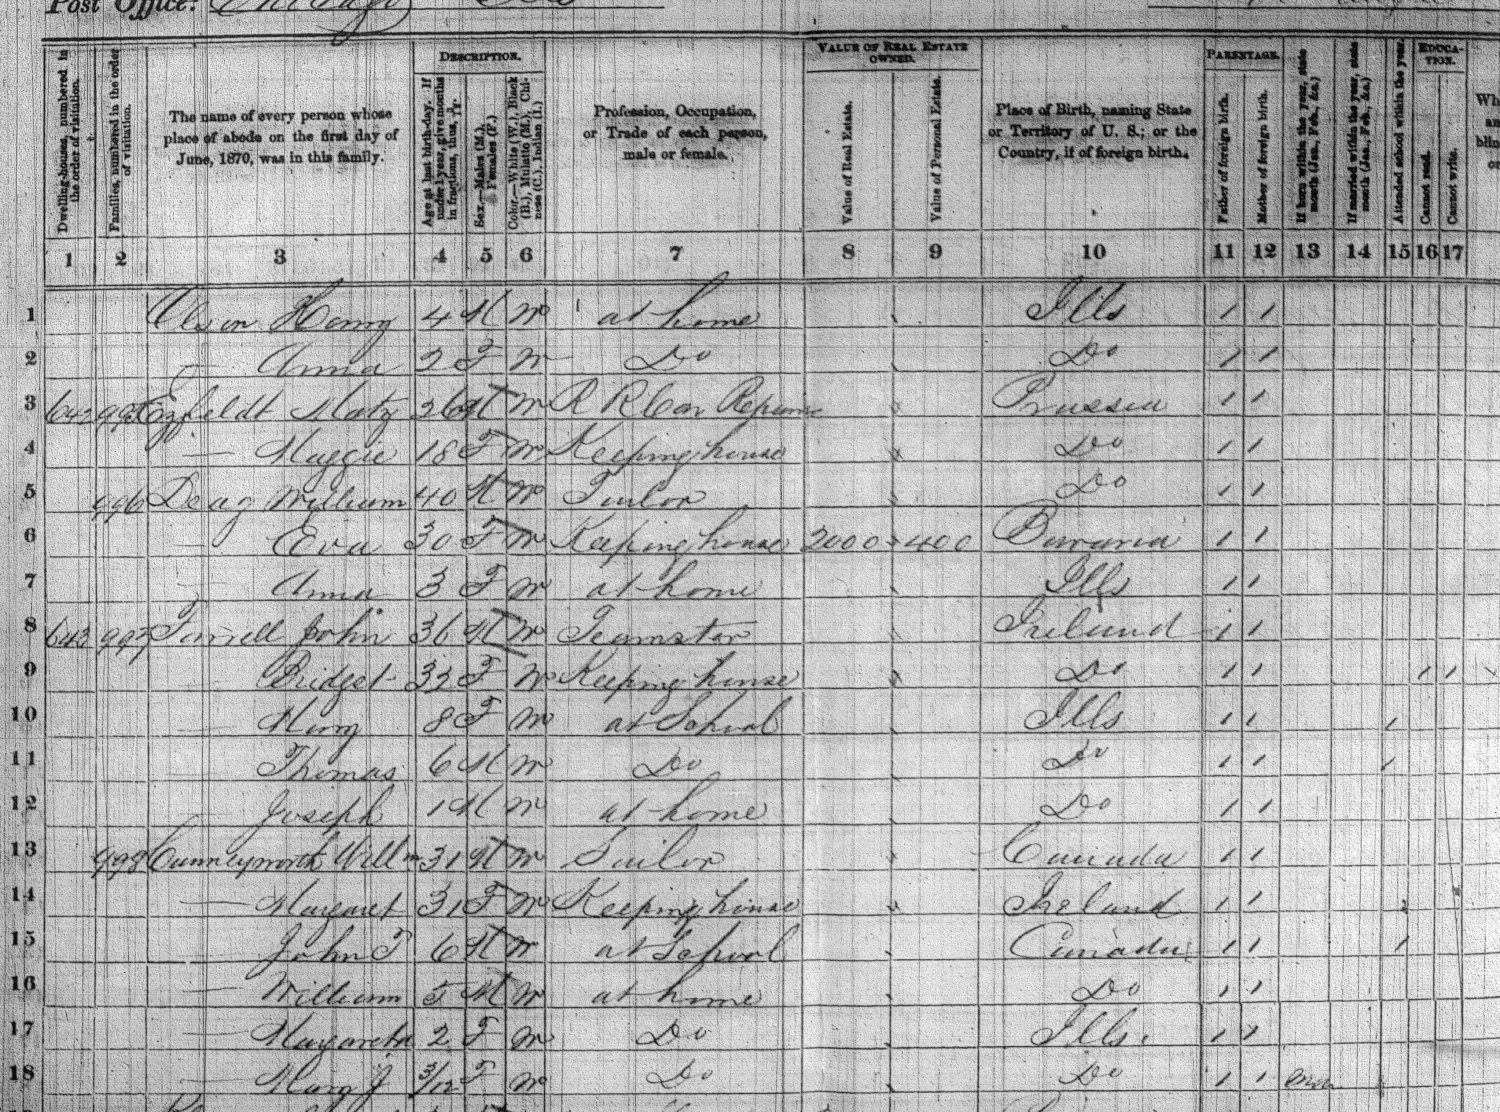 Post Office: Chicago
Dwelling-houses, numbered in the order of visitation.
Families, numbered in the order of visitation.
The name of every person whose place of abode on the first day of June, 1870, was in this family.
DESCRIPTION.
Age at last birth-day. If under 1 year, give months in fractions, thus, 3/12
Sex.—Males (M.), Females (F.)
Color.—White (W.), Black (B.), Mulatto (M.), Chinese (C.), Indian (I.)
Profession, Occupation, or Trade of each person, male or female.
VALUE OF REAL ESTATE OWNED.
Value of Real Estate.
Value of Personal Estate.
Place of Birth, naming State or Territory of U. S.; or the Country, if of foreign birth.
PARENTAGE.
Father of foreign birth.
Mother of foreign birth.
If born within the year, state month (Jan., Feb., &c.)
If married within the year, state month (Jan., Feb., &c.)
Attended school within the year.
EDUCATION.
Cannot read.
Cannot write.
1 2 3 4 5 6 7 8 9 10 11 12 13 14 15 16 17
1 Olson Henry 4 M W at home Ills 1 1
2 — Anna 2 F W Do Do 1 1
3 642 995 Ezfieldt Matz 26 M W R R Car Prussia 1 1
4 — Maggie 18 F W Keeping house Do 1 1
5 996 Deag William 40 M W Do 1 1
6 — Eva 30 F W Keeping house 2000 400 Bavaria 1 1
7 — Anna 3 F W at home Ills 1 1
8 643 997 John 36 M W Teamster Ireland 1 1
9 — Bridget 32 F W Keeping house Do 1 1 1 1
10 — Mary 8 F W at School Ills 1 1 1
11 — Thomas 6 M W Do Do 1 1 1
12 — Joseph 1 M W at home Do 1 1
13 998 Cunneyworth Willm 31 M W Sailor Canada 1 1
14 — Margaret 31 F W Keeping house Ireland 1 1
15 — John T 6 M W at School Canada 1 1 1
16 — William 5 M W at home Do 1 1
17 — Margaretha 2 F W Do Ills. 1 1
18 — Mary J 3/12 F W Do Do 1 1